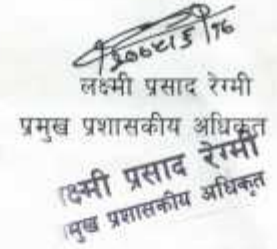 लक्ष्मी प्रसाद रेग्मी
प्रमुख प्रशासकीय अधिकृत
क्ष्मी प्रसाद रेग्मी
मुख प्रशासकीय अधिकृत